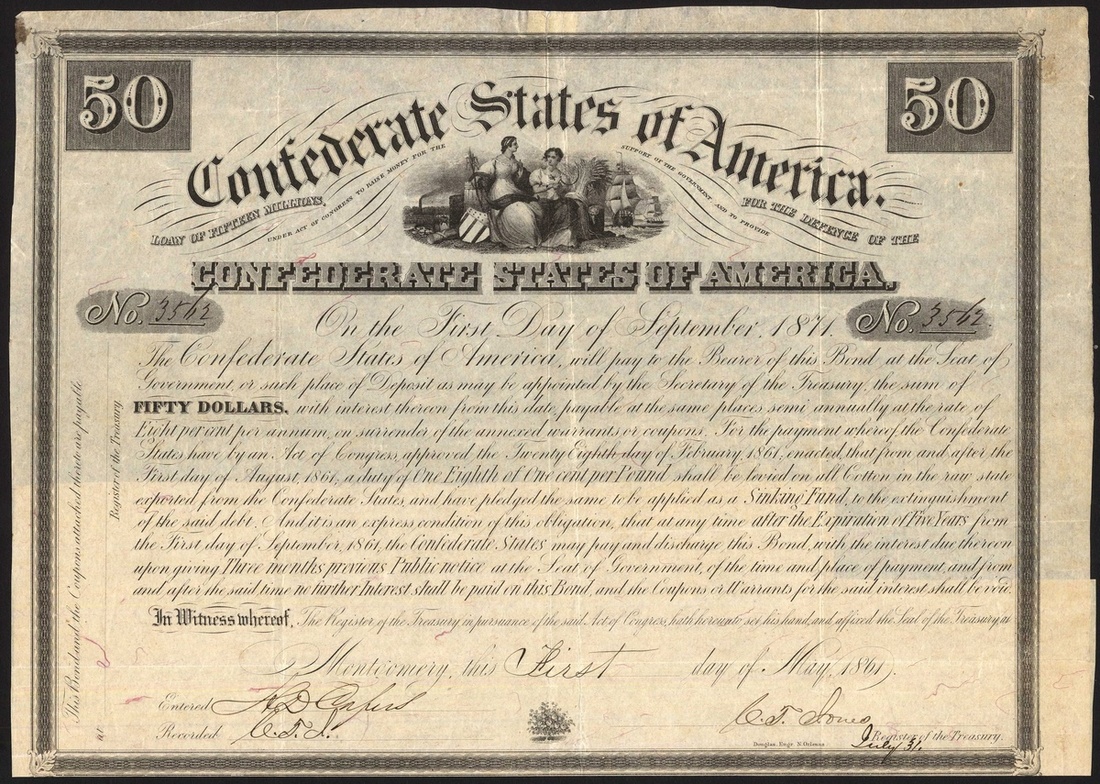 50
50
Confederate States of America.
LOAN OF FIFTEEN MILLIONS,
UNDER ACT OF CONGRESS TO RAISE MONEY FOR THE
SUPPORT OF THE GOVERNMENT AND TO PROVIDE
FOR THE DEFENCE OF THE
CONFEDERATE STATES OF AMERICA.
No. 3562
No. 3562
On the First Day of September, 1871
The Confederate States of America, will pay to the Bearer of this Bond at the Seat of
Government, or such place of Deposit as may be appointed by the Secretary of the Treasury, the sum of
FIFTY DOLLARS, with interest thereon from this date, payable at the same places semi annually at the rate of
Eight per cent per annum, on surrender of the annexed warrants or coupons. For the payment whereof the Confederate
States have by an Act of Congress, approved the Twenty Eighth day of February, 1861, enacted, that from and after the
First day of August, 1861, a duty of One Eighth of One cent per Pound shall be levied on all Cotton in the raw state
exported from the Confederate States, and have pledged the same to be applied as a Sinking Fund, to the extinguishment
of the said debt. And it is an express condition of this obligation, that at any time after the Expiration of Five Years, from
the First day of September, 1861, the Confederate States may pay and discharge this Bond, with the interest due thereon
upon giving Three months previous Public notice at the Seat of Government, of the time and place of payment, and from
and after the said time no further Interest shall be paid on this Bond, and the Coupons or Warrants for the said interest shall be void.
In Witness whereof, The Register of the Treasury in pursuance of the said Act of Congress, hath hereunto set his hand, and affixed the Seal of the Treasury, at
Montgomery, this First day of May, 1861.
Entered
Recorded C. T. J.
C. T. Jones
Register of the Treasury.
July 31.
Douglas. Engr. N. Orleans
This Bond and the Coupons attached thereto are payable
at
Register of the Treasury.